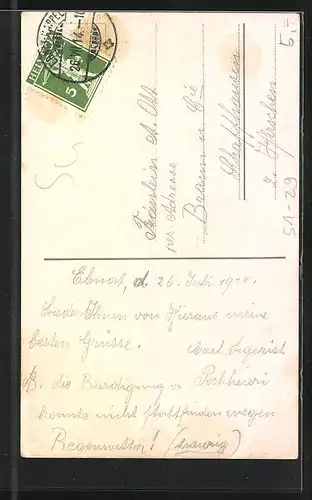 HELVETIA
5
5.-
S1-29
Fräulein A. Ott
per. Adresse
Braun u. Cie
Schaffhausen
z. Hirschen
Ebnat, d. 26. Juli 19
sende Ihnen von Hieraus meine
besten Grüsse. Karl Segerist
NB. die Beerdigung v.
konnte nicht stattfinden wegen
Regenwetter! (traurig)